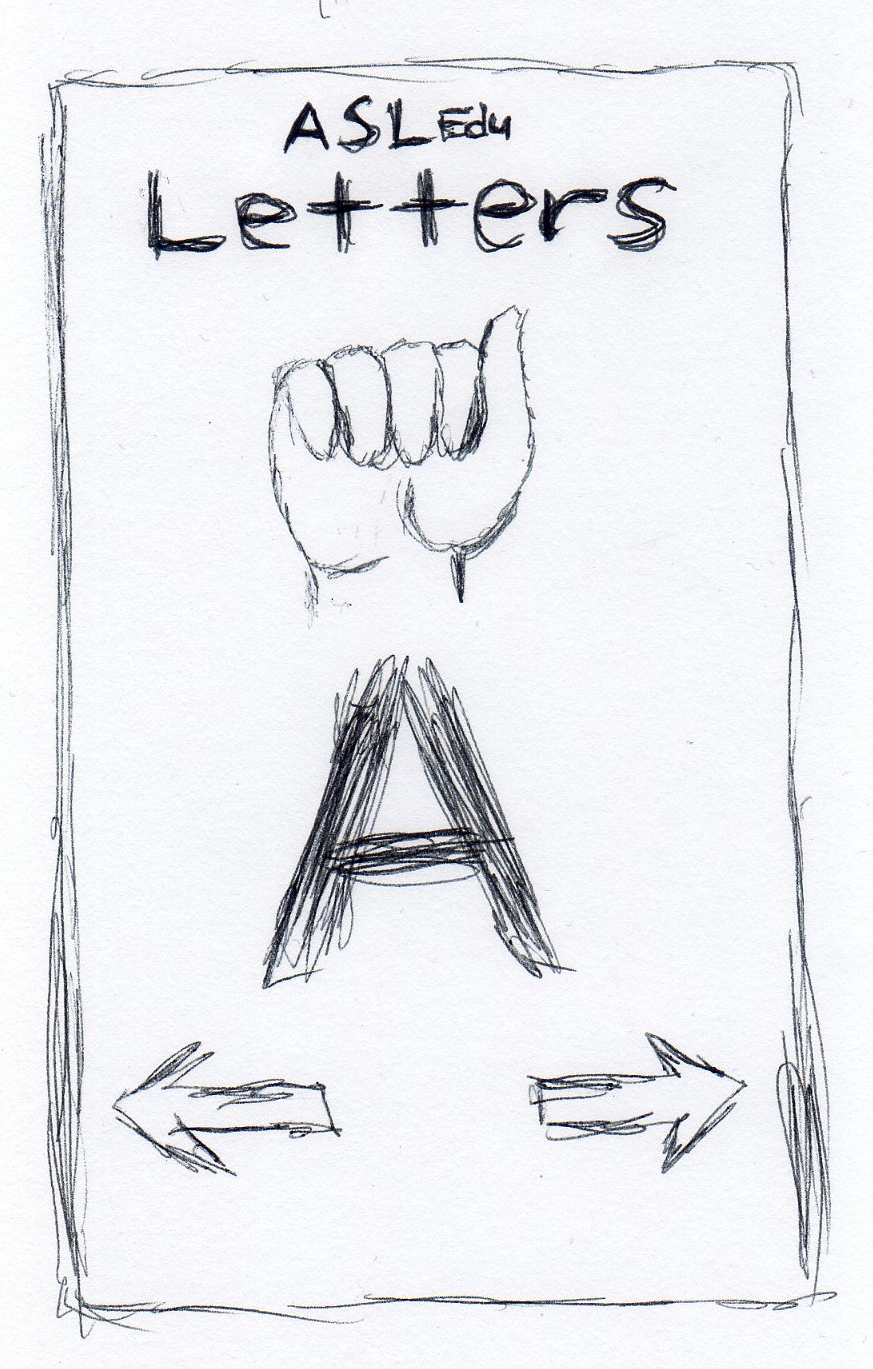 ASL Edu
Letters
A